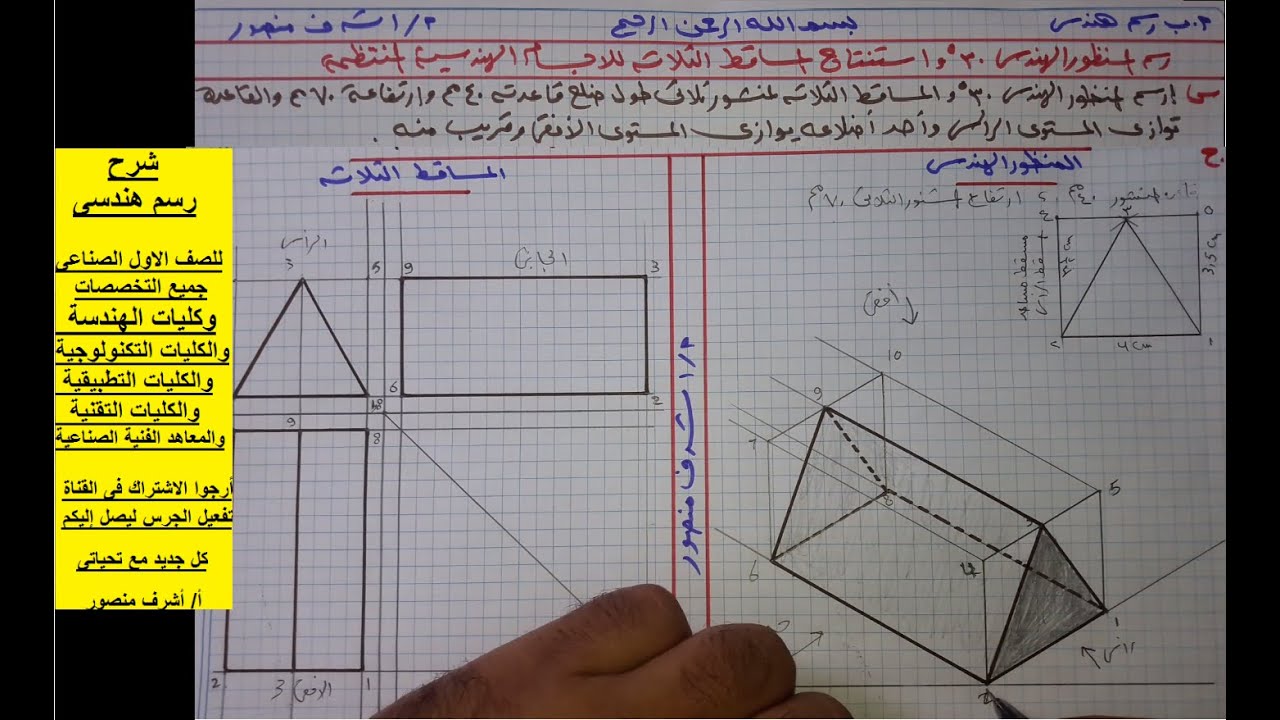 م.ب رسم هندسى
بسم الله الرحمن الرحيم
م/ا شرف منصور
رسم المنظور الهندسى ٣٠° واستنتاج المساقط الثلاثه للاجسام الهندسية المنتظمه
س/ إرسم المنظور الهندسى ٣٠° والمساقط الثلاثه لمنشور ثلاثى طول ضلع قاعدته ٤٠مم وارتفاعة ٧٠مم والقاعدة
توازى المستوى الرأسى وأحد أضلاعه يوازى المستوى الأفقى وقريب منه.
ج.
المنظور الهندسى
المساقط الثلاثه
المنشور ٤٠مم، ارتفاع المنشور الثلاثى ٧٠مم
3
5
3,5 cm
4 cm
الرأسى
3
5
9
الجانبى
3
6
2
9
8
2
3
الافقى
1
م/ا شرف منصور
أفقى
10
9
7
8
5
6
1
شرح
رسم هندسى
للصف الاول الصناعى
جميع التخصصات
وكليات الهندسة
والكليات التكنولوجية
والكليات التطبيقية
والكليات التقنية
والمعاهد الفنية الصناعية
أرجوا الاشتراك فى القناة
تفعيل الجرس ليصل إليكم
كل جديد مع تحياتى
أ/ أشرف منصور